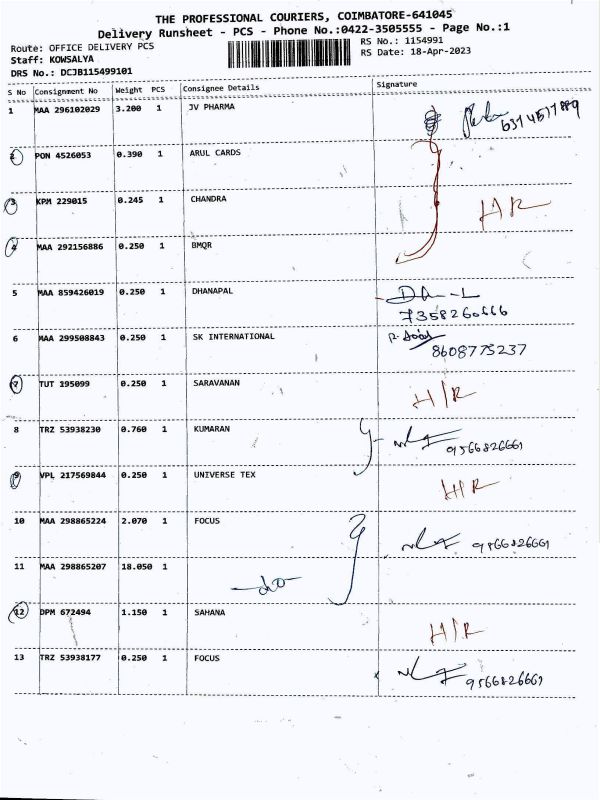 THE PROFESSIONAL COURIERS, COIMBATORE-641045
Delivery Runsheet - PCS - Phone No.:0422-3505555 - Page No.:1
Route: OFFICE DELIVERY PCS RS No.: 1154991
Staff: KOWSALYA RS Date: 18-Apr-2023
DRS No.: DCJB115499101
S No Consignment No Weight PCS Consignee Details Signature
1 MAA 296102029 3.200 1 JV PHARMA
2 PON 4526053 0.390 1 ARUL CARDS
3 KPM 229015 0.245 1 CHANDRA H/R
4 MAA 292156886 0.250 1 BMQR
5 MAA 859426019 0.250 1 DHANAPAL
7358260666
6 MAA 299508843 0.250 1 SK INTERNATIONAL
8608775237
7 TUT 195099 0.250 1 SARAVANAN H/R
8 TRZ 53938230 0.760 1 KUMARAN 9566826661
9 VPL 217569844 0.250 1 UNIVERSE TEX H/R
10 MAA 298865224 2.070 1 FOCUS 9566826661
11 MAA 298865207 18.050 1 -do-
12 DPM 672494 1.150 1 SAHANA H/R
13 TRZ 53938177 0.250 1 FOCUS 9566826661